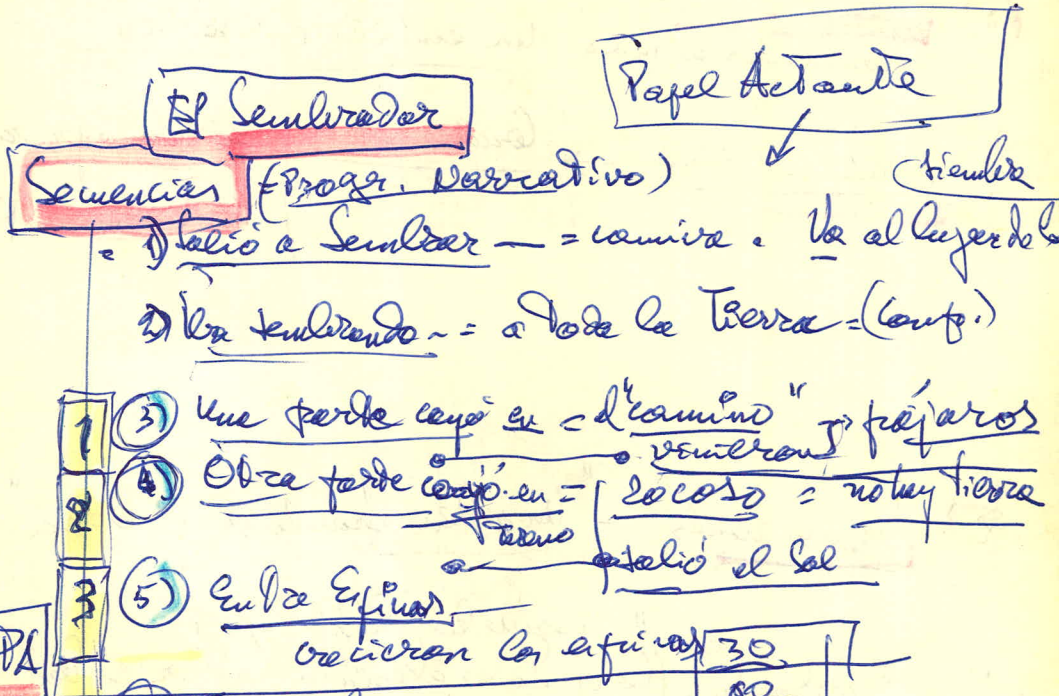 El Sembrador
Papel Actante
Secuencias (Progr. Narrativo)
(siembra
1) Salió a Sembrar — = camina. Va al lugar de la
2) Va sembrando = a toda la Tierra = (camp.)
1 3) Una parte cayó en = el "camino" y pájaros
vinieron
2 4) Otra parte cayó en = rocoso = no hay tierra
Terreno
salió el Sol
3 5) Entre Espinas
crecieron las espinas 30
PA